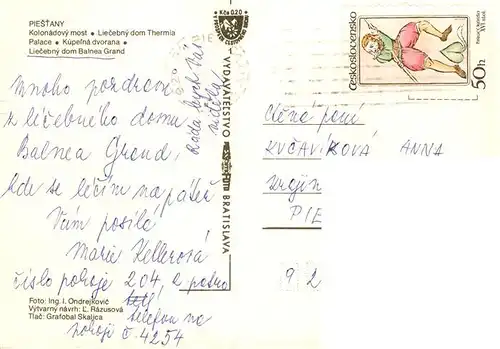 PIEŠŤANY
Kolonádový most • Liečebný dom Thermia
Palace • Kúpeľná dvorana •
Liečebný dom Balnea Grand
Kčs 0,20
Mnoho pozdravů
z léčebného domu
Balnea Grand,
kde se léčím na páteř
Vám posílá
Marie Kellerová
číslo pokoje 204, a
telefon na
pokoji č. 4254
Ráda bych Vás
viděla
Foto: Ing. I. Ondrejkovič
Výtvarný návrh: Ľ. Rázusová
Tlač: Grafobal Skalica
VYDAVATEĽSTVO
BRATISLAVA
Československo
50 h
Ctěná paní
KUČAVÍKOVÁ ANNA
PIE
92